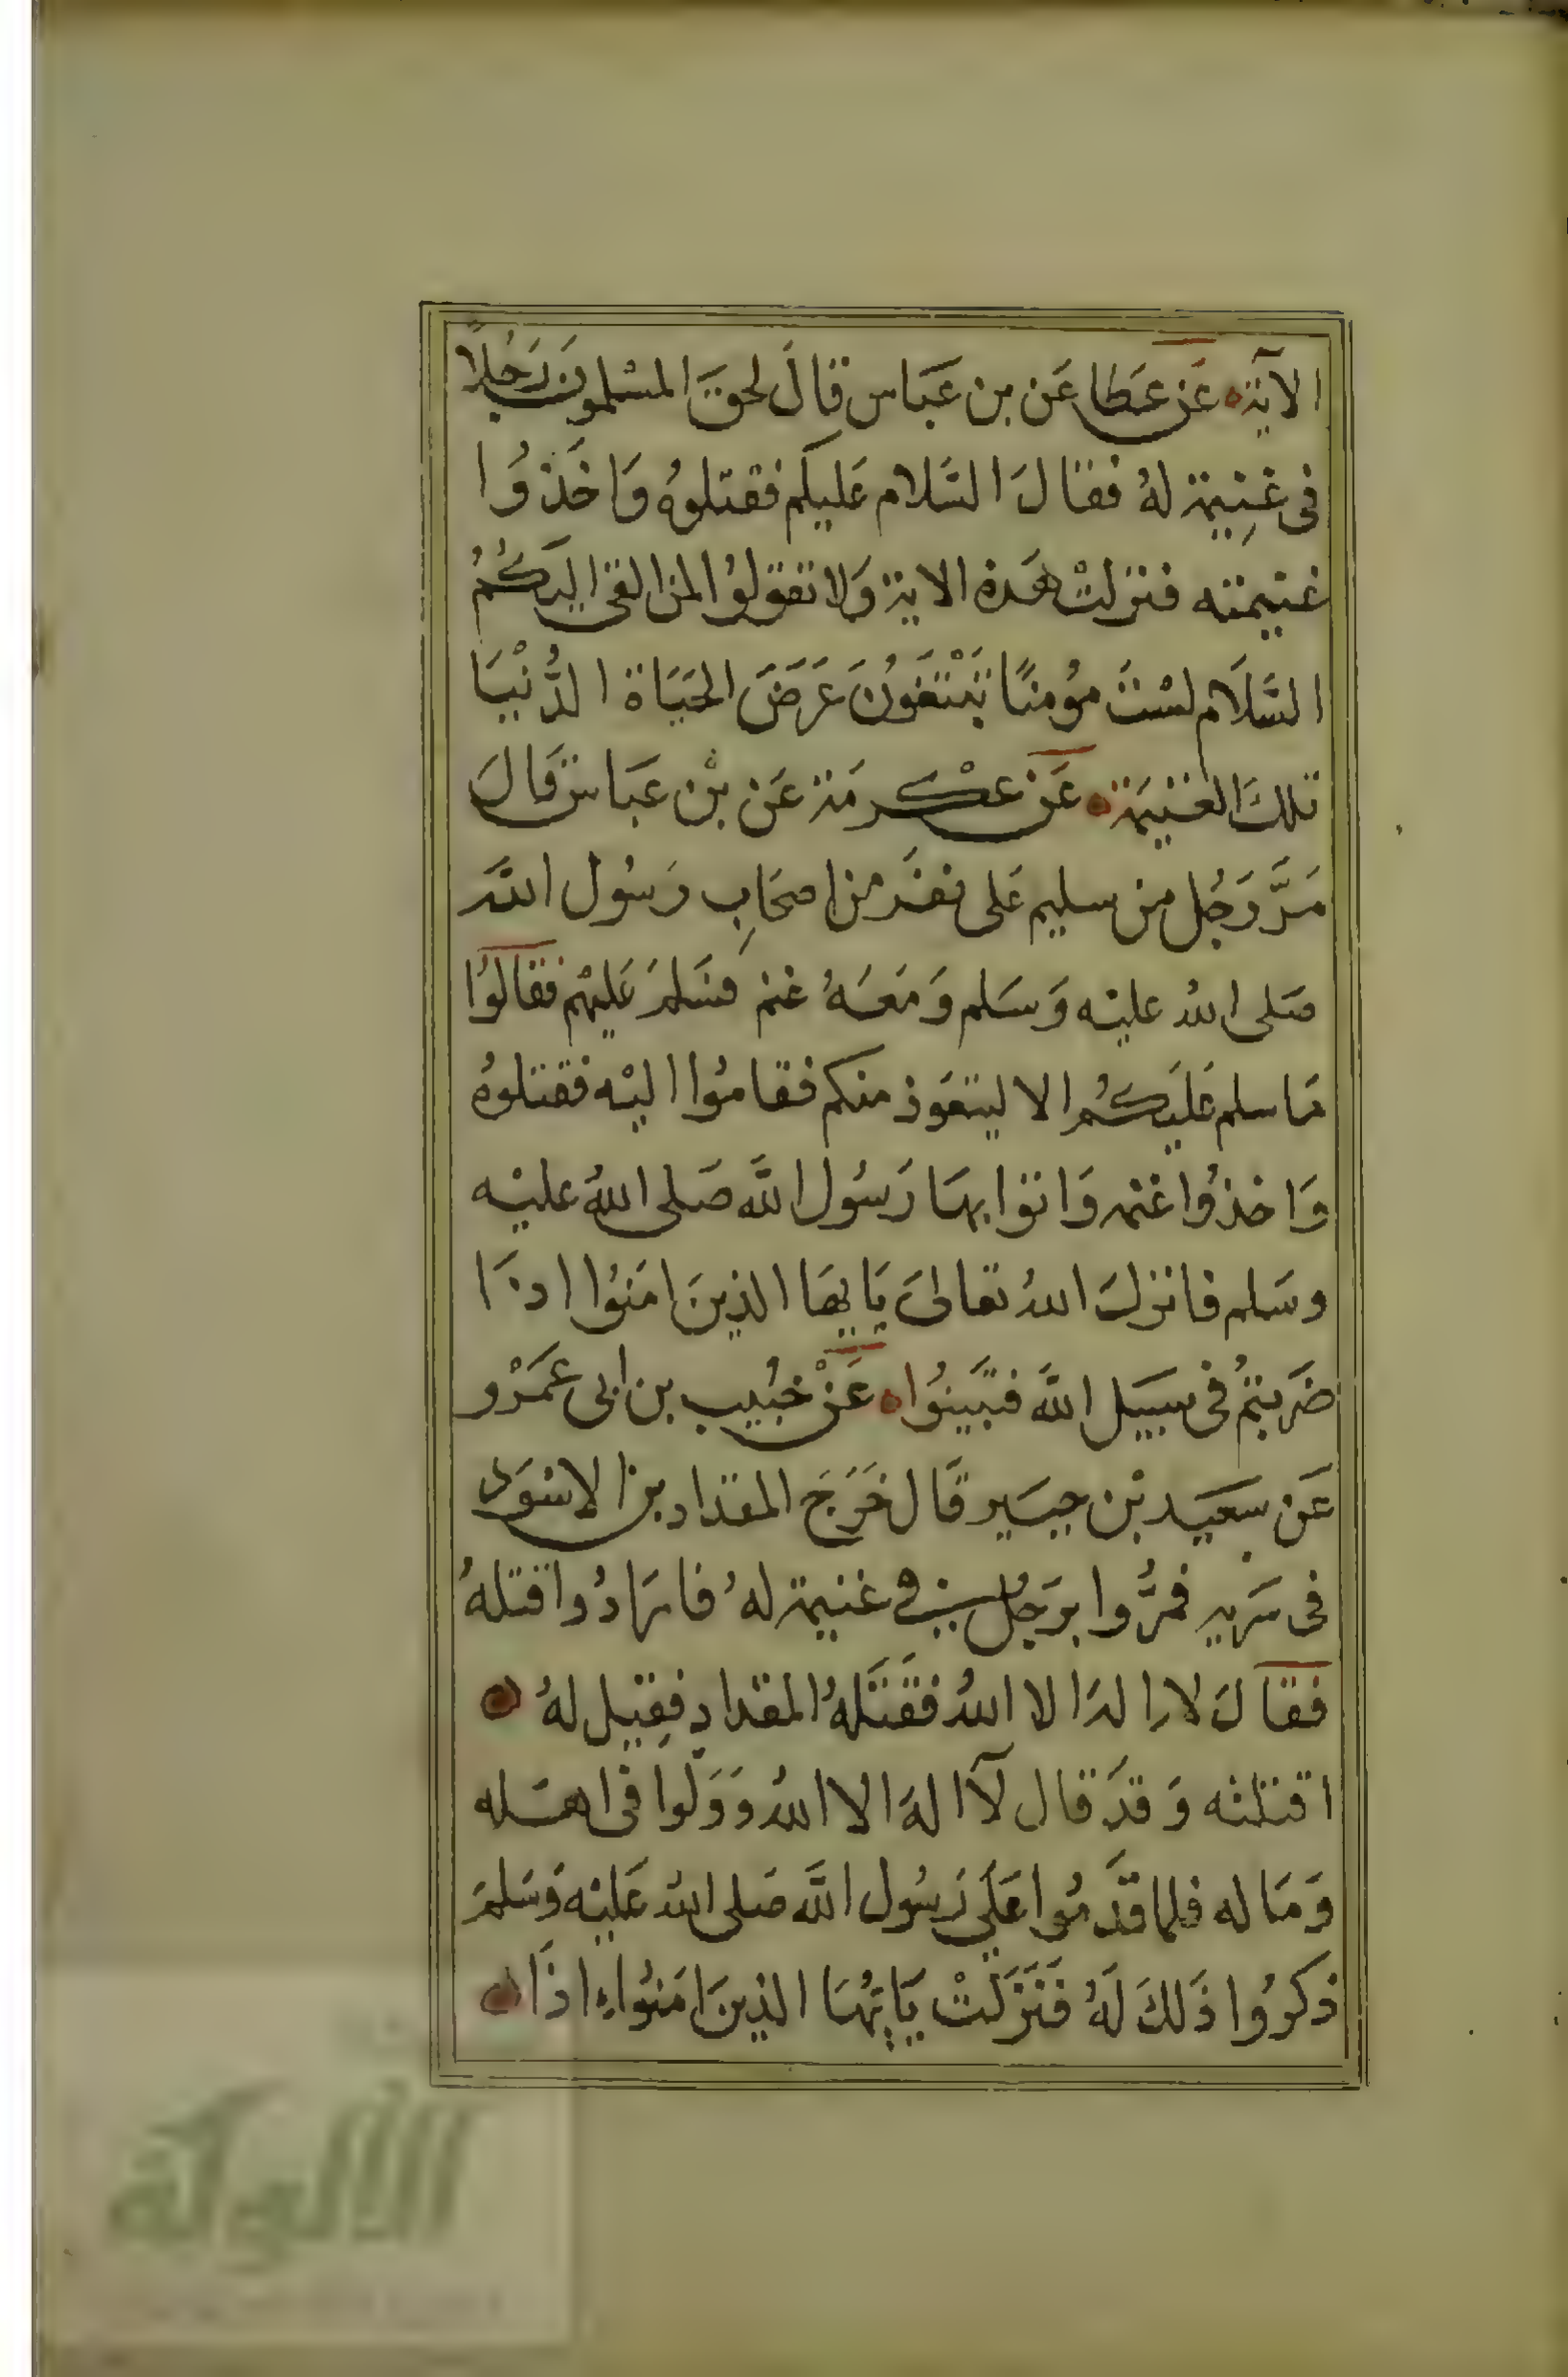 الآية عَن عَطا عَن بن عَبَاس قالَ لحقَ المسْلمونَ رَجُلاً
فى غنِيمة لهُ فقالَ السَّلام عَليكم فقتلوهُ وَاخَذوُا
غنيمته فنزلتْ هَذه الاية وَلا تقولوُا لمن القى اليكُمُ
السَّلَام لسْتَ مؤُمنًا تَبْتَغَوُنَ عَرَضَ الحَيَاة الدُّنْيَا
تلكَ الغنيمَة عَن عكْرمَة عَن بْن عَبَاس قَالَ
مَرَّ رَجُل من سليم عَلى نفَر من اصحَابِ رَسُول اللَّه
صَلى اللهُ عليْه وَسَلم وَمَعَهُ غنم فسَلمَ عَليْهم فقالوُا
مَا سلم عَليَكُم الا ليتعَوذ منكم فقامُوا اليْه فقتلوهُ
وَاخذوُا غنمه وَاتوا بهَا رَسُول اللَّه صَلى اللهُ عليْه
وسَلم فانزلَ اللهُ تعالىَ يَايهَا الذينَ امَنوُا اذَا
ضَربتمُ فى سبيَل اللَّه فتبَينوُا عَنْ حَبُيب بن ابى عمَرْو
عَن سعيَد بْن جبَير قَال خَرَجَ المقدَاد بن الاسْوَد
فى سَريه فمرُّوا برَجُل فى غنيمة لهُ فارَادُوا قتلهُ
فقالَ لا الهَ الا اللهُ فقَتَلهُ المقدَادِ فقِيل لهُ
اقتلته وَقدَ قال لآ الهَ الا اللهُ وَوَلوا فى اهَله
وَمَا له فلما قدَّمُوا عَلَى رَسُول اللَّه صَلى اللهُ عَليْه وَسَلمَ
ذكرُوا ذَلكَ لَهُ فَنَزَلَتْ يَايُّهَا الذينَ امَنوُا اذَا
الألوكة